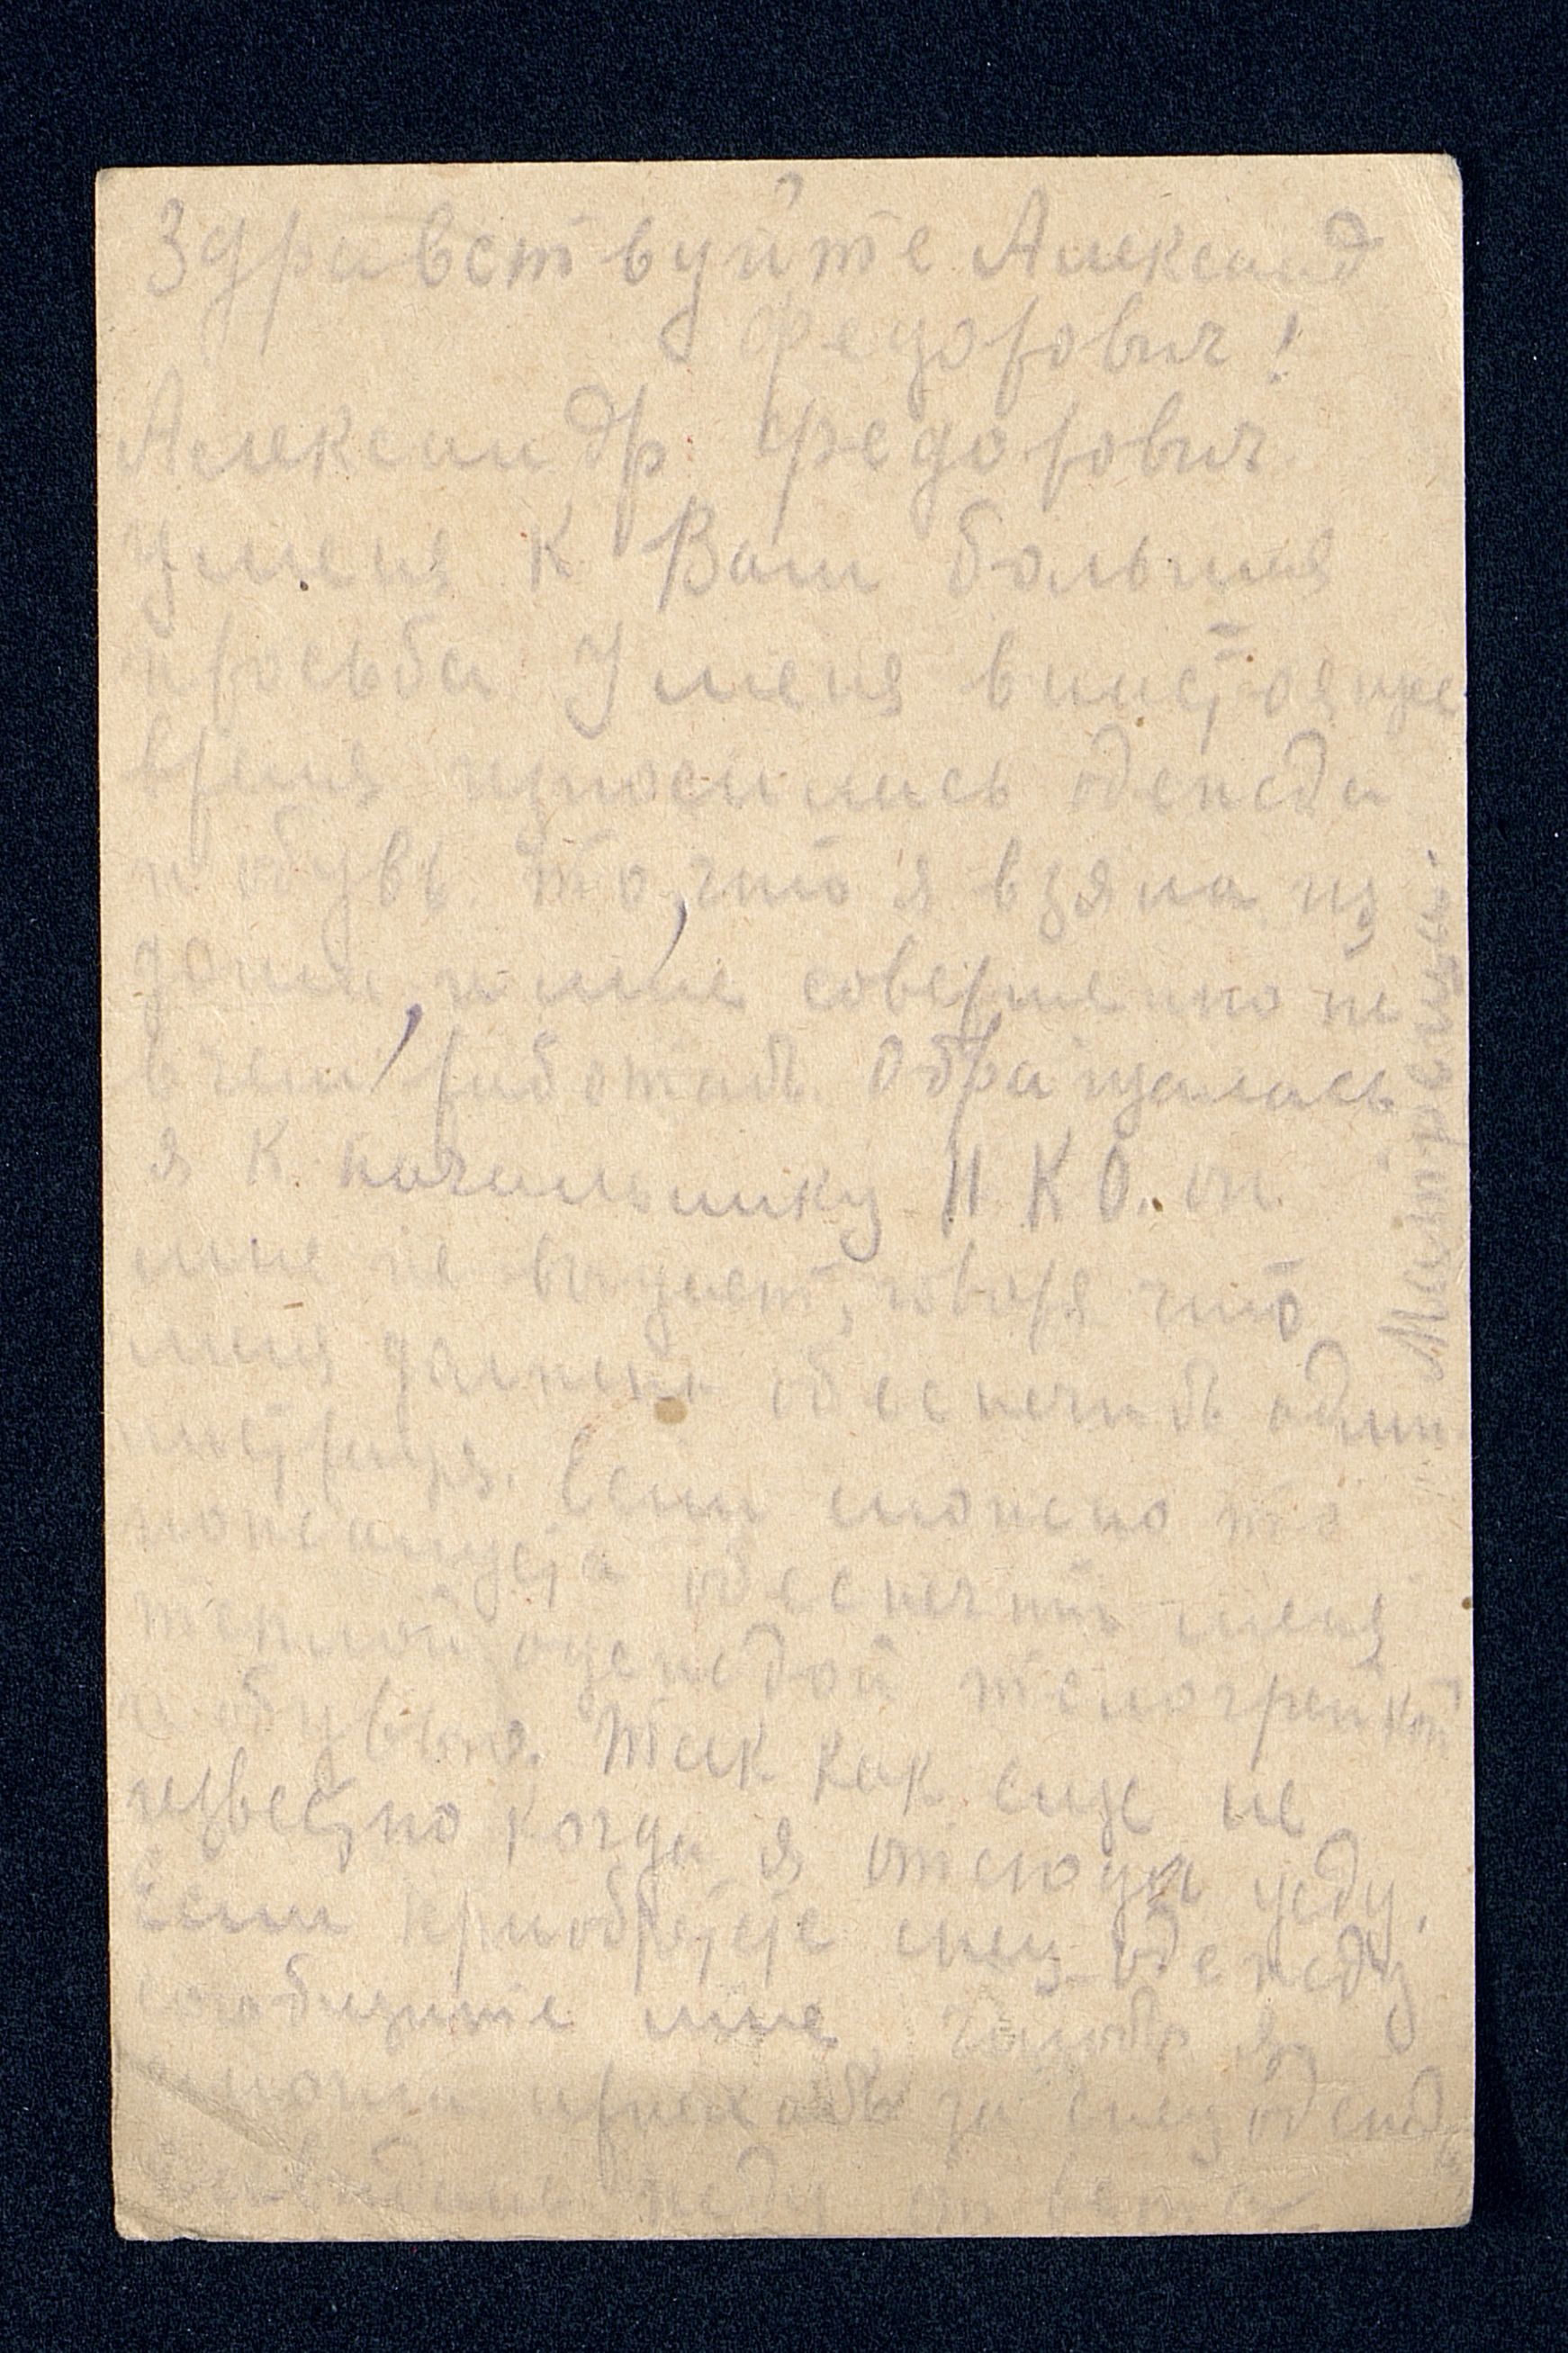 Здравствуйте Александ
Федорович!
Александр Федорович
Уменя к Вам большая
просьба У меня внастоящее
время износилась одежда
и обувь то, что я взяла из
дома, и мне совершенно не
вчем работать. Обращалась
я к начальнику НКО. он
мне не выдает, говоря что
меня должны обеспечить админ
нистрация. Если можно то
пожалуста обеспечить меня
теплой одеждой телогрейкой
и обувью. Так как еще не
известно когда я отсюда уеду.
Если приобретете спец-одежду
сообщите мне чтобы я
могла приехать за спецодежд
досвидания жду ответа